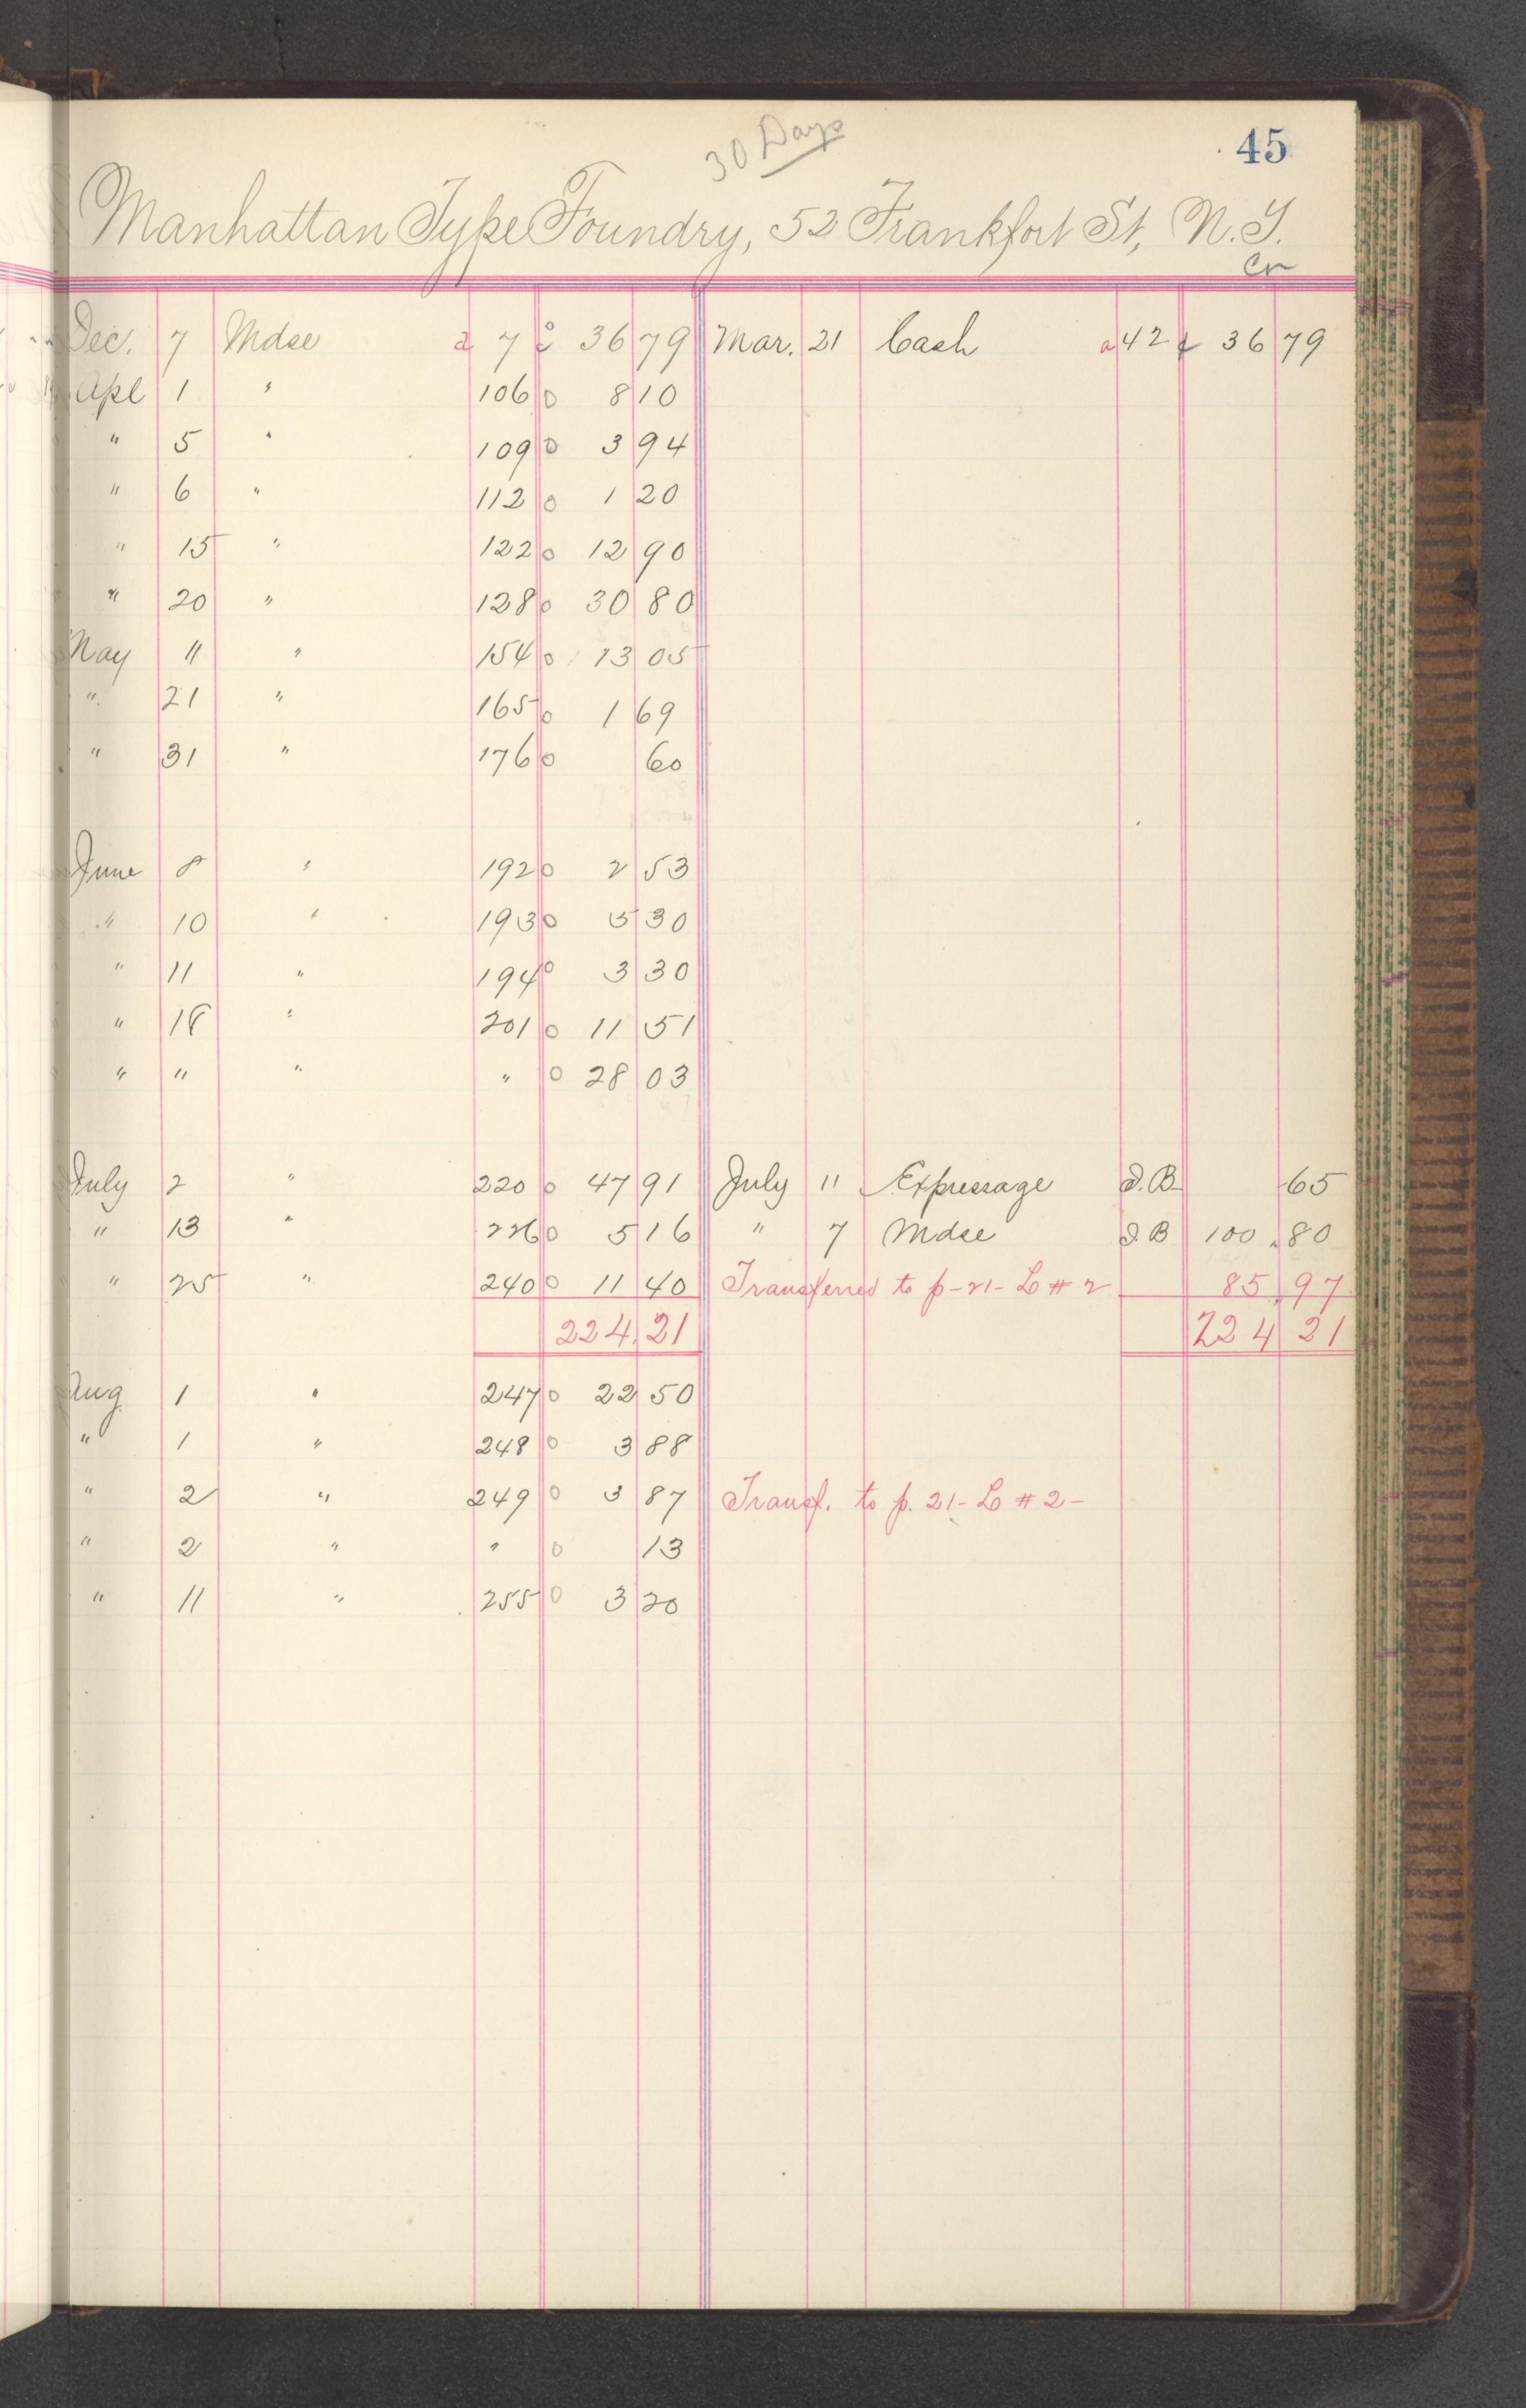 30 Days
45
Manhattan Type Foundry, 52 Frankfort St, N.Y.
Cr
Dec. 7 Mdse a 7 c 36 79 Mar. 21 Cash a 42 ¢ 36 79
Apl 1 " 106 0 8 10
" 5 " 109 0 3 94
" 6 " 112 0 1 20
" 15 " 122 0 12 90
" 20 " 128 0 30 80
May 11 " 154 0 13 05
" 21 " 165 0 1 69
" 31 " 176 0 60
June 8 " 192 0 2 53
" 10 " 193 0 5 30
" 11 " 194 0 3 30
" 18 " 201 0 11 51
" " " " 0 28 03
July 2 " 220 0 47 91 July 11 Expressage J.B. 65
" 13 " 226 0 5 16 " 7 Mdse J.B 100 80
" 25 " 240 0 11 40 Transferred to p-21- L # 2 85 97
224.21 224 21
Aug 1 " 247 0 22 50
" 1 " 248 0 3 88
" 2 " 249 0 3 87 Transf. to p. 21- L # 2-
" 2 " " 0 13
" 11 " 255 0 3 20